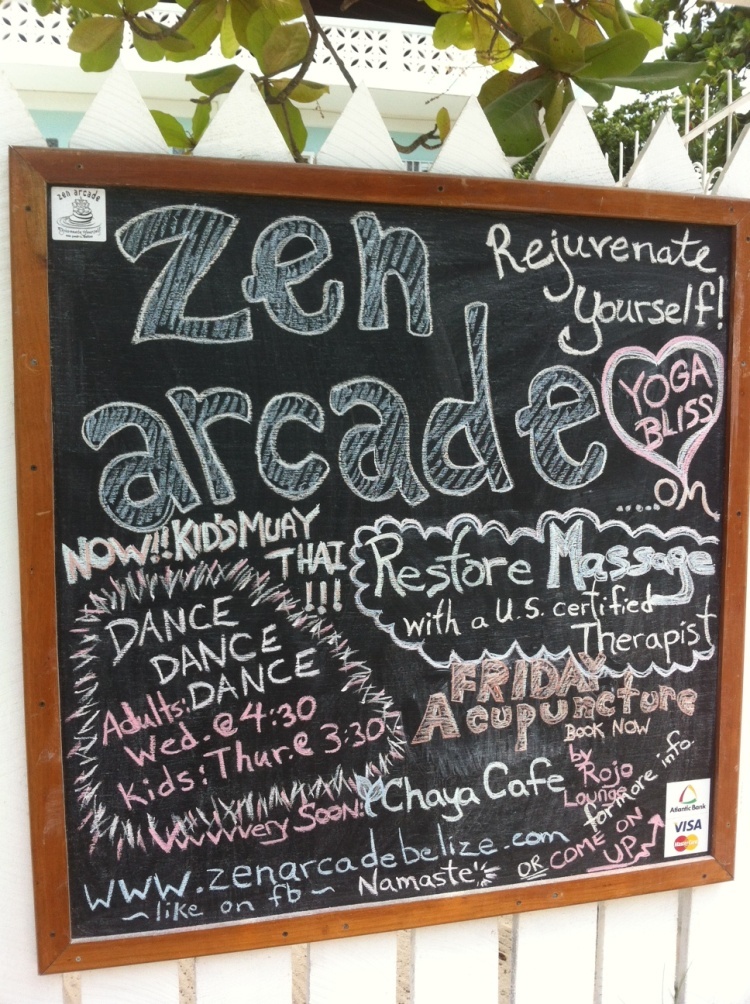 zen arcade
zen
arcade
Rejuvenate
Yourself!
YOGA
BLISS
.....oh
NOW!! KID'S MUAY
THAI
!!!
Restore Massage
with a U.S. certified
Therapist
DANCE
DANCE
DANCE
Adults:
Wed. @ 4:30
Kids: Thur. @ 3:30
FRIDAY
Acupuncture
BOOK NOW
Very Soon:
Chaya Cafe
by
Rojo
Lounge
www.zenarcadebelize.com
for more info.
~like on fb~
Namaste
OR COME ON
UP
Atlantic Bank
VISA
MasterCard